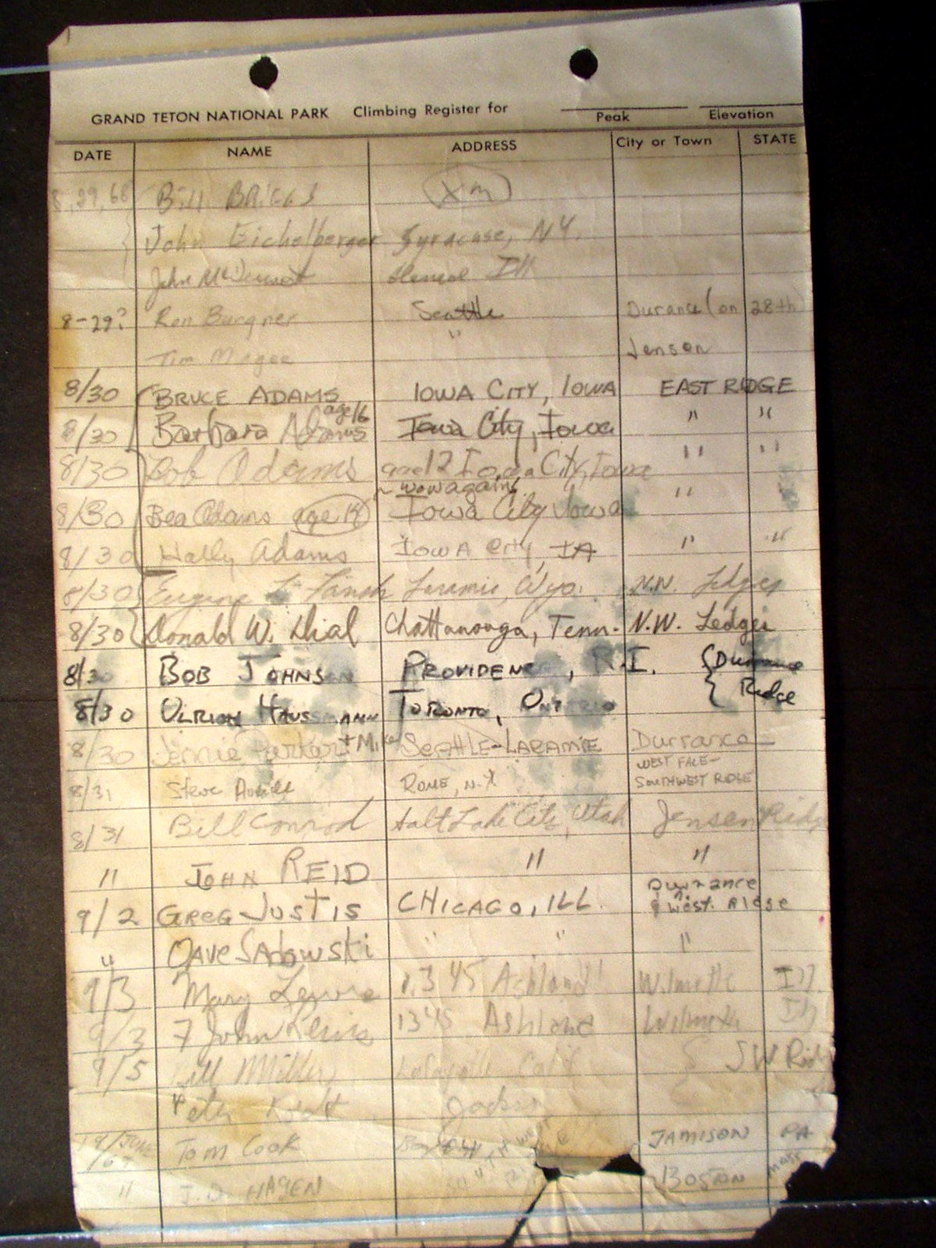 GRAND TETON NATIONAL PARK Climbing Register for
Peak Elevation
DATE NAME ADDRESS City or Town STATE
8,29,68 Bill BRIGGS Xm
John Eichelberger Syracuse, N.Y.
John Ill
8-29? Ron Burgner Seattle Durance (on 28th)
Tim Magee " Jensen
8/30 BRUCE ADAMS IOWA CITY, IOWA EAST RIDGE
8/30 Barbara Adams age 16 Iowa City, Iowa " "
8/30 Bob Adams age 12 Iowa City, Iowa " "
wow again!
8/30 Bea Adams age Iowa City Iowa "
8/30 Wally Adams IOWA City IA " "
8/30 Eugene Laramie, Wyo. N.W. Ledges
8/30 Donald W. Dial Chattanooga, Tenn. N.W. Ledges
8/30 BOB JOHNSON PROVIDENCE, R.I. { Durrance
8/30 ULRICH HAUSSMANN TORONTO, ONTARIO Ridge
8/30 Jennie + Mike SEATTLE-LARAMIE Durrance—
WEST FACE—
8/31 Steve ROME, N.Y. SOUTHWEST RIDGE
8/31 Bill Conrod Salt Lake City, Utah Jensen Ridge
" JOHN REID " "
9/2 GREG JUSTIS CHICAGO, ILL. Durrance
& West. Ridge
" DAVE Sadowski " " "
9/3 Mary 1345 Ashland Wilmette Ill.
9/3 John 1345 Ashland Wilmette Ill
9/5 Bill Miller Lafayette Calif { SW Ridge
Peter
19/JUNE/69 Tom Cook JAMISON PA
" J.D. HAGEN BOSTON Mass